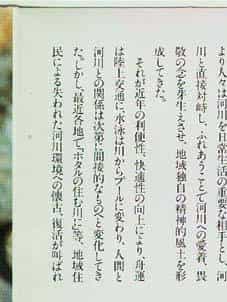 より人々は河川を日常生活の重要な相手とし、河
川と直接対峙し、ふれあうことで河川への愛着、畏
敬の念を芽生えさせ、地域独自の精神的風土を形
成してきた。
それが近年の利便性、快適性の向上により、舟運
は陸上交通に、水泳は川からプールに変わり、人間と
河川との関係は次第に間接的なものへと変化してき
た。しかし、最近各地で「ホタルの住む川に」等、地域住
民による失われた河川環境への懐古、復活が叫ばれ